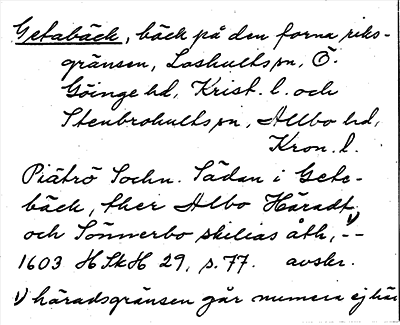 Getabäck, bäck på den forna riks-
gränsen, Loshults sn, Ö.
Göinge hd, Krist. l. och
Stenbrohults sn, Allbo hd,
Kron. l.
Piätrö Sochn. Sädan i Gete-
bäck, ther Albo Häradt
och Sonnerbo skilias åth, 1) --
1603 HSkH 29, s. 77. avskr.
1) häradsgränsen går numera ej här